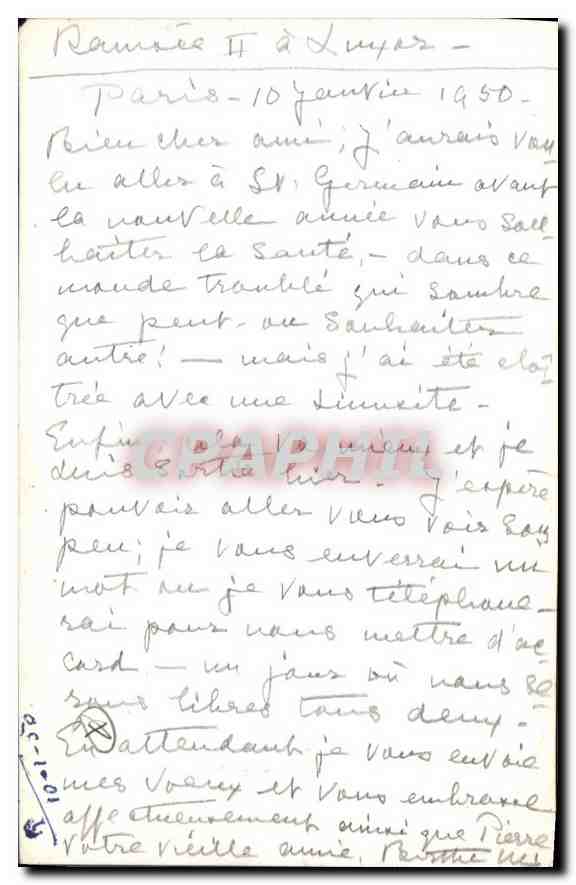 Ramsès II à Luxor -
Paris - 10 Janvier 1950 -
Bien cher ami; J'aurais vou-
lu aller à St. Germain avant
la nouvelle année vous sou-
haiter la santé, - dans ce
monde troublé qui sombre
que peut-on souhaiter
autre! - mais j'ai été cloî-
trée avec une sinusite -
Enfin cela va mieux et je
suis sortie hier - J'espère
pouvoir aller vous voir sous
peu; je vous enverrai un
mot ou je vous téléphone-
rai pour nous mettre d'ac-
cord - un jour où nous se-
rons libres tous deux -
En attendant je vous envoie
mes voeux et vous embrasse
affectueusement ainsi que Pierre
Votre vieille amie, Berthe
10-1-50
CARAPHIL